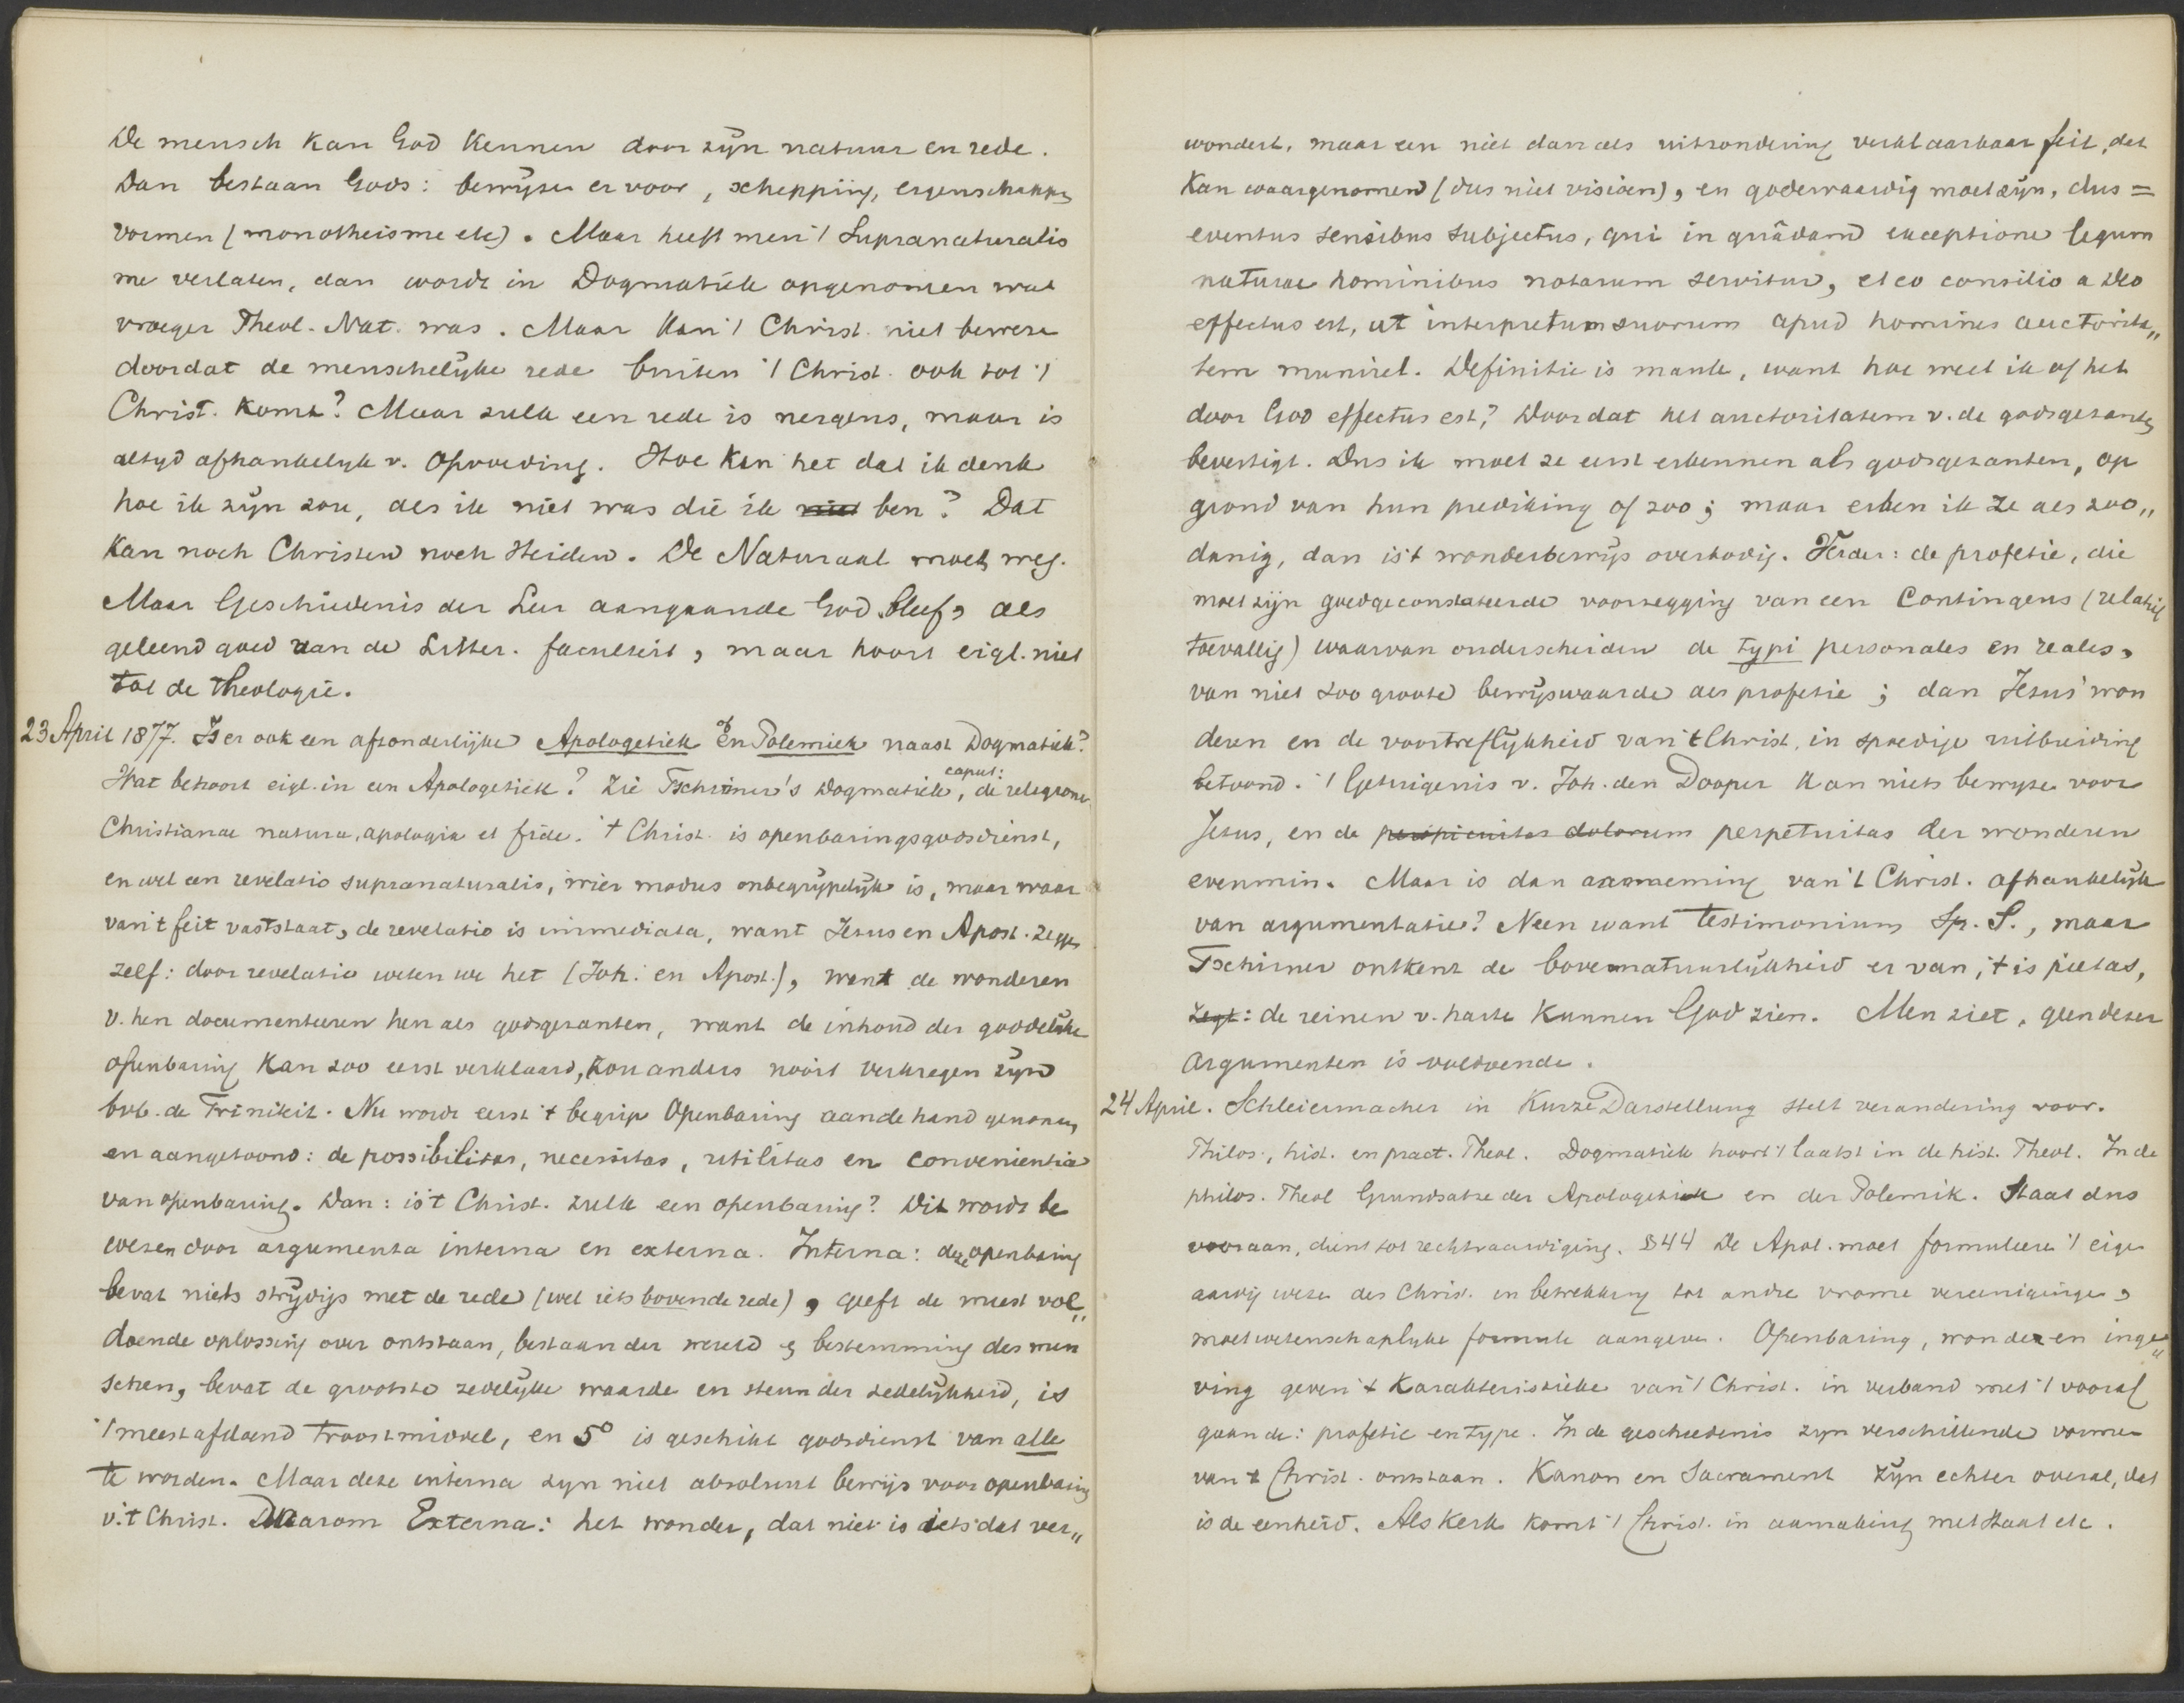 De mensch kan God kennen door zijn natuur en rede.
Dan bestaan Gods: bewijzen er voor, schepping, eigenschappen
vormen (monotheisme etc). Maar heeft men 't Supranaturalis
me verlaten, dan wordt in Dogmatiek opgenomen wat
vroeger Theol. Nat. was. Maar kan 't Christ. niet bewezen
doordat de menschelijke rede buiten 't Christ. ook tot 't
Christ. komt? Maar zulk een rede is nergens, maar is
altijd afhankelijk v. opvoeding. Hoe kan het dat ik denk
hoe ik zijn zou, als ik niet was die ik niet ben? Dat
kan noch Christen noch Heiden. De Naturaal moet weg.
Maar Geschiedenis der Leer aangaande God bleef, als
geleend goed van de Litter. faculteit, maar hoort eigl. niet
tot de theologie.
23 April 1877. Is er ook een afzonderlijke Apologetiek en of Polemiek naast Dogmatiek?
Wat behoort eigl. in een Apologetiek? Zie Tschirner's Dogmatiek, caput: de religionis
Christianae natura, apologia et fide. 't Christ. is openbaringsgodsdienst,
en wel een revelatio supranaturalis, wier modus onbegrijpelijk is, maar waar
van 't feit vaststaat, de revelatio is immediata, want Jezus en Apost. zeggen
zelf: door revelatio weten we het (Joh. en Apost.), want de wonderen
v. hen documenteeren hen als godsgezanten, want de inhoud der goddelijke
openbaring kan zoo eerst verklaard, kon anders nooit verkregen zijn
bvb. de Triniteit. Nu wordt eerst 't begrip Openbaring aan de hand genomen,
en aangetoond: de possibilitas, necessitas, utilitas en convenientia
van openbaring. Dan: is 't Christ. zulk een openbaring? Dit wordt be
wezen door argumenta interna en externa. Interna: deze openbaring
bevat niets strijdigs met de rede (wel iets boven de rede), geeft de meest vol„
doende oplossing over ontstaan, bestaan der wereld en bestemming des men
schen, bevat de grootste zedelijke waarde en steun der zedelijkheid, is
't meest afdoend troostmiddel, en 5° is geschikt godsdienst van alle
te worden. Maar deze interna zijn niet absoluut bewijs voor openbaring
v. 't Christ. Daarom Externa: het wonder, dat niet is iets dat ver„
wondert, maar een niet dan als uitzondering verklaarbaar feit, dat
kan waargenomen (dus niet visioen), en godewaardig moet zijn, dus =
eventus sensibus subjectus, qui in quâdam exceptione legum
naturae hominibus notarum cernitur, et eo consilio a Deo
effectus est, ut interpretum suorum apud homines auctorita„
tem muniret. Definitie is mank, want hoe weet ik of het
door God effectus est? Doordat het auctoritatem v. de godsgezanten
bevestigt. Dus ik moet ze eerst erkennen als godsgezanten, op
grond van hun prediking of zoo; maar erken ik ze als zoo„
danig, dan is 't wonderbewijs overbodig. Verder: de profetie, die
moet zijn goedgeconstateerde voorzegging van een Contingens (relatief
toevallig) waarvan onderscheiden de typi personales en reales,
van niet zoo groote bewijswaarde als profetie; dan Jezus' won
deren en de voortreflijkheid van 't Christ. in spoedige uitbreiding
betoond. 't Getuigenis v. Joh. den Dooper kan niets bewijzen voor
Jezus, en de perspicuitas dolorum perpetuitas der wonderen
evenmin. Maar is dan aanneming van 't Christ. afhankelijk
van argumentatie? Neen want testimonium Sp. S., maar
Tschirner ontkent de bovennatuurlijkheid er van, 't is pietas,
zegt: de reinen v. harte kunnen God zien. Men ziet, geen dezer
argumenten is voldoende.
24 April. Schleiermacher in Kurze Darstellung stelt verandering voor.
Philos., hist. en pract. Theol. Dogmatiek hoort 't laatst in de hist. Theol. In de
philos. Theol Grundsatze der Apologetik en der Polemik. Staat dus
vooraan, dient tot rechtvaardiging. §44 De Apol. moet formuleeren 't eigen
aardig wezen des Christ. in betrekking tot andre vrome vereenigingen,
moet wetenschaplijke formule aangeven. Openbaring, wonder en inge„
ving geven 't karakteristieke van 't Christ. in verband met 't vooraf
gaande: profetie en type. In de geschiedenis zijn verschillende vormen
van 't Christ. ontstaan. Kanon en Sacrament zijn echter overal, dat
is de eenheid. Als Kerk komt 't Christ. in aanraking met Staat etc.